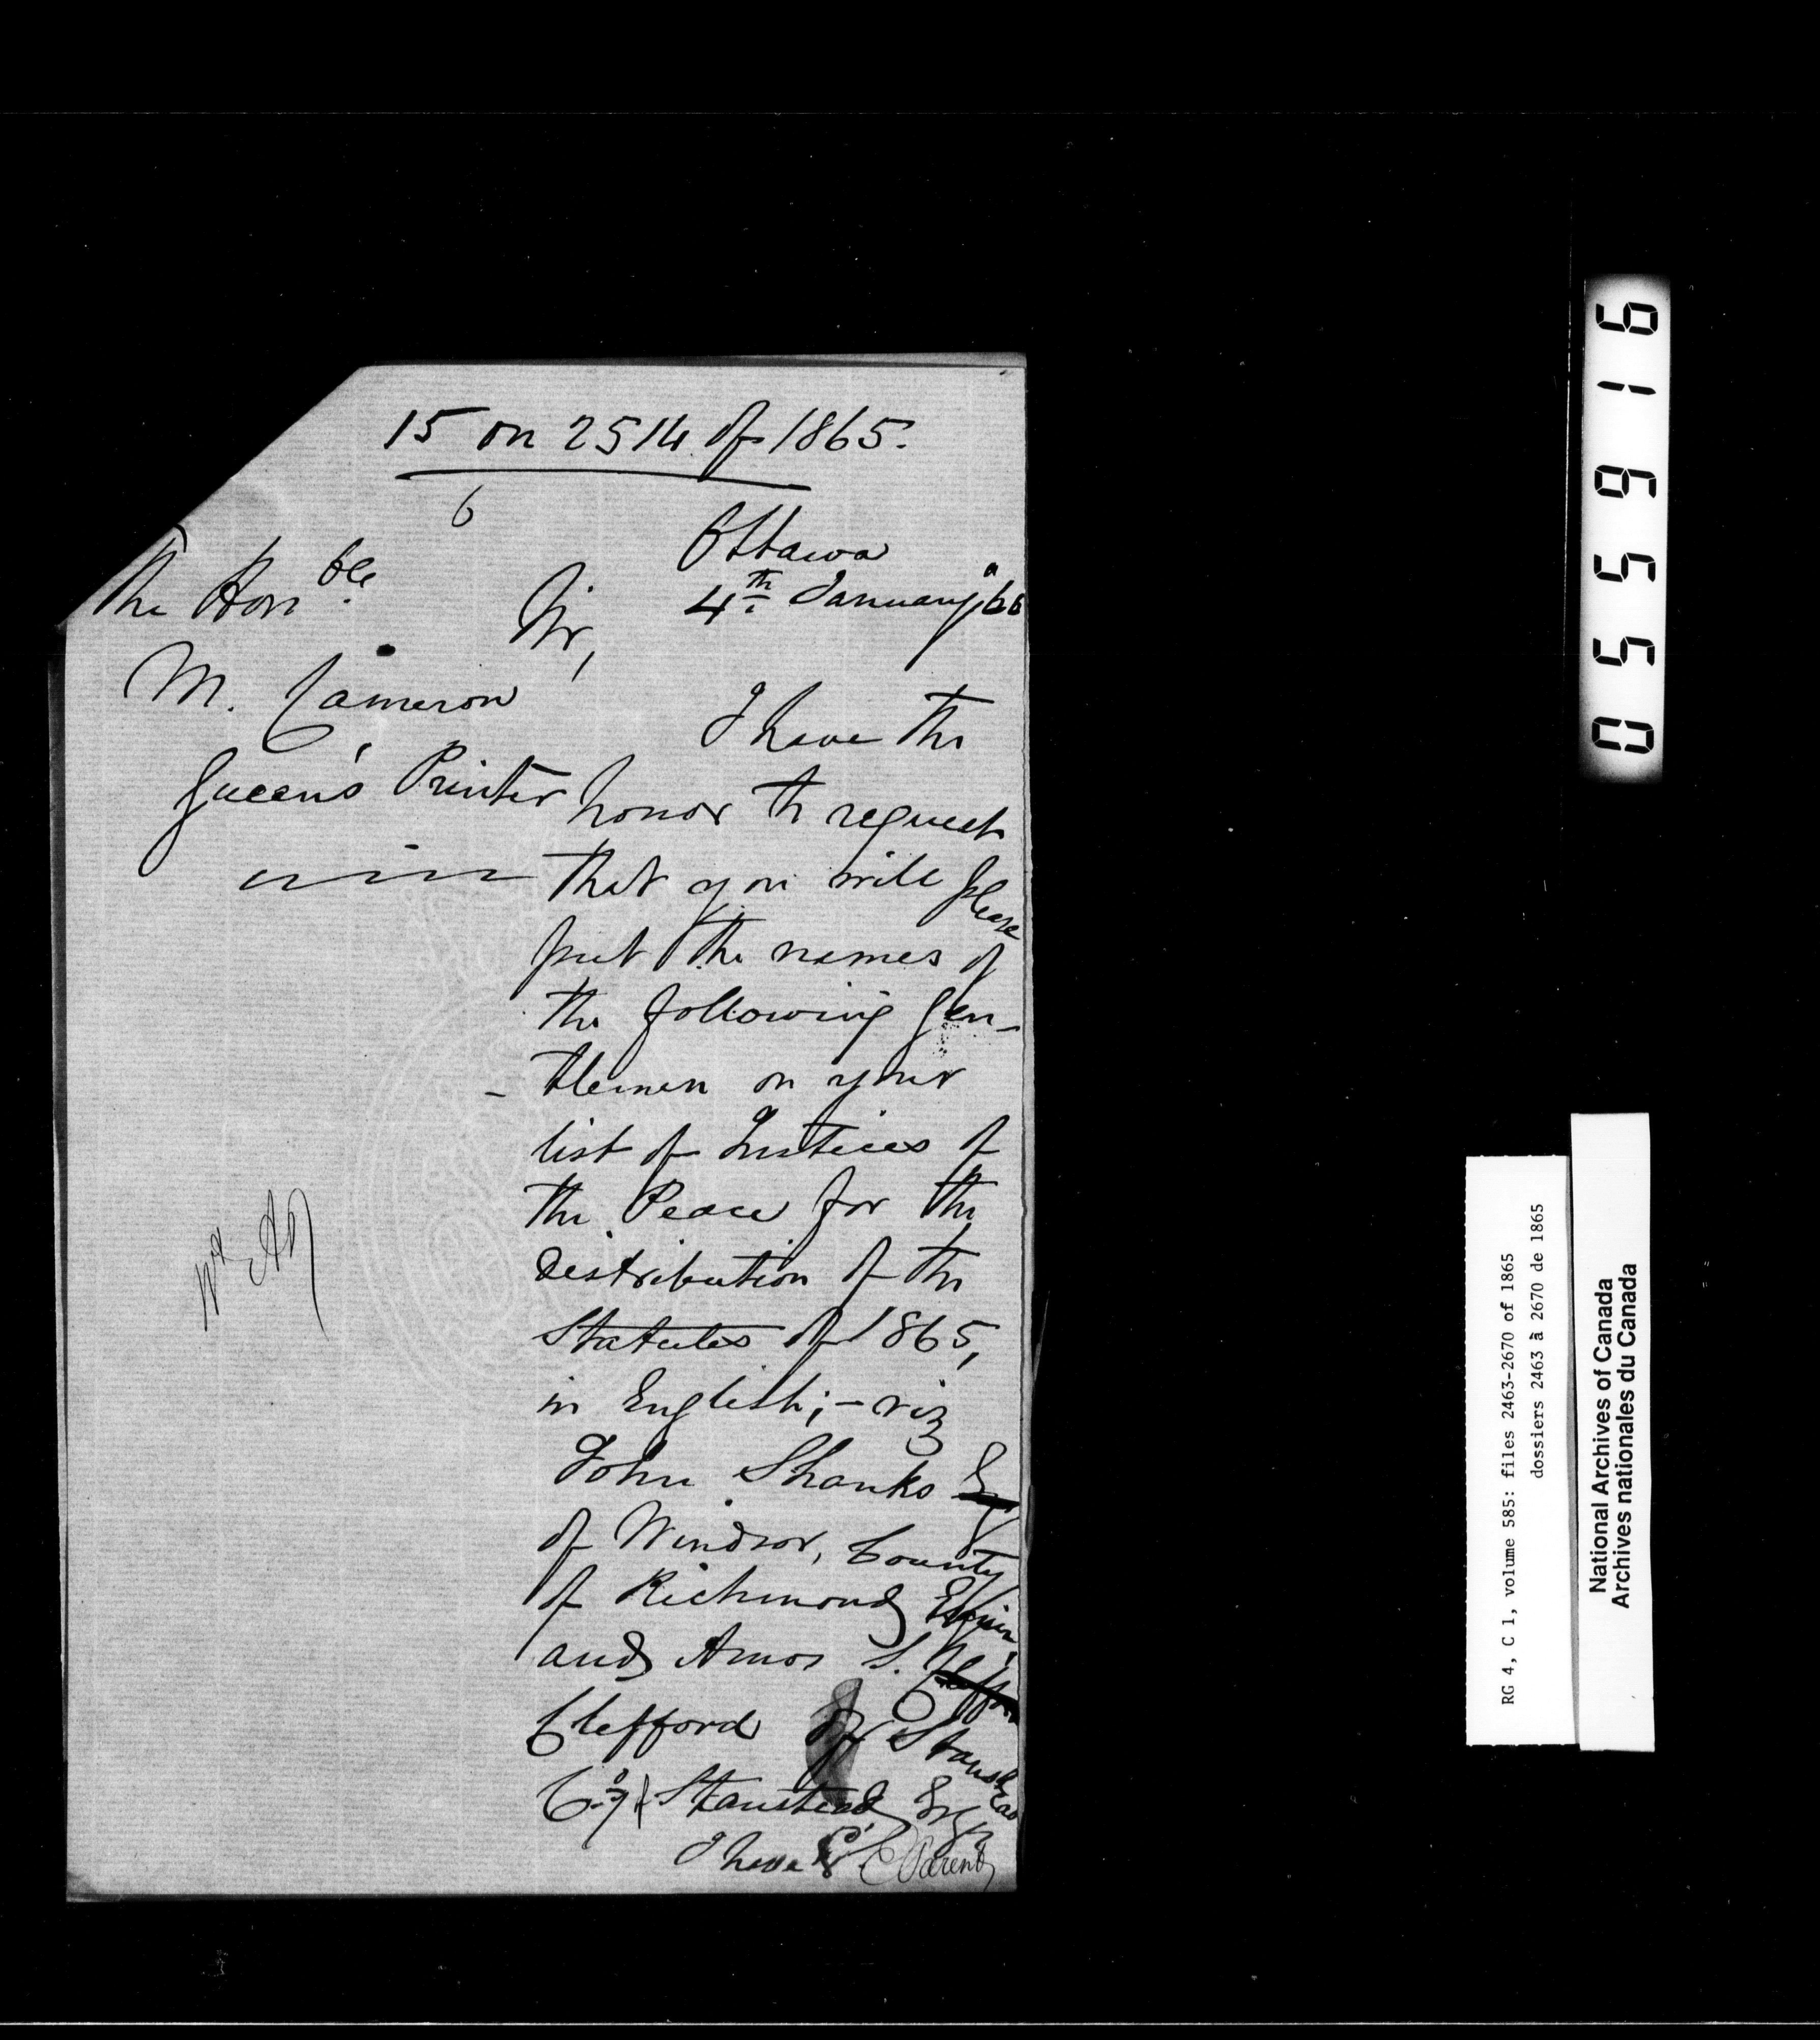 15 on 2514 of 1865.
6
Ottawa
4th January '66
The Honble.
M. Cameron
Queen's Printer
Sir,
I have the
honor to request
that you will please
put the names of
the following Gen-
- tlemen on your
list of Justices of
the Peace for the
distribution of the
Statutes of 1865,
in English; - viz
John Shanks
of Windsor, County
of Richmond
and Amos S.
Clefford of Stanstead
Co. of Stanstead
I have &c
E Parent
055916
RG 4, C 1, volume 585: files 2463-2670 of 1865
dossiers 2463 à 2670 de 1865
National Archives of Canada
Archives nationales du Canada